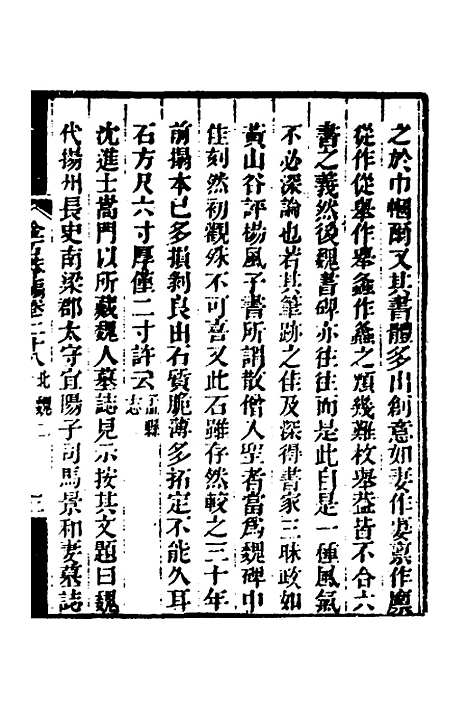 之於巾幗爾又其書體多出創意如妻作㚢稟作廩
從作從舉作舉蠡作蠡之類幾難枚舉蓋皆不合六
書之義然後魏書碑亦往往而是此自是一種風氣
不必深論也若其筆跡之佳及深得書家三昧政如
黃山谷評楊風子書所謂散僧入聖者當爲魏碑中
佳刻然初觀殊不可喜又此石雖存然較之三十年
前搨本已多損剝良由石質脆薄多拓定不能久耳
石方尺六寸厚僅二寸許云孟縣志
沈進士嵩門以所藏魏人墓誌見示按其文題曰魏
代揚州長史南梁郡太守宜陽子司馬景和妻墓誌
金石萃編卷二十八 北魏二